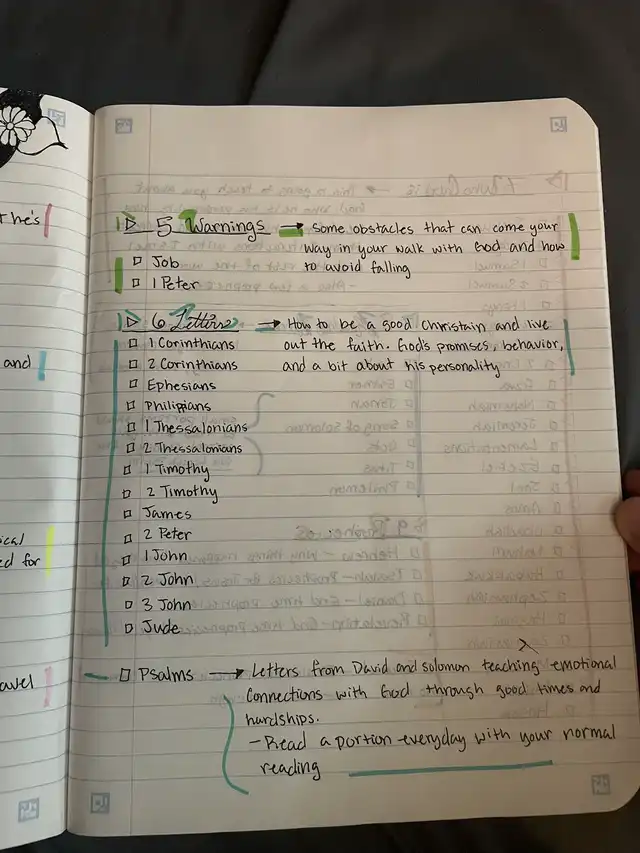 the's
and
ical
ed for
avel
5 Warnings → Some obstacles that can come your
way in your walk with God and how
to avoid falling
Job
1 Peter
6 Letters → How to be a good Christain and live
out the faith. God's promises, behavior,
and a bit about his personality
1 Corinthians
2 Corinthians
Ephesians
Philippians
1 Thessalonians
2 Thessalonians
1 Timothy
2 Timothy
James
2 Peter
1 John
2 John
3 John
Jude
Psalms → Letters from David and solomon teaching emotional
connections with God through good times and
hardships.
- Read a portion everyday with your normal
reading